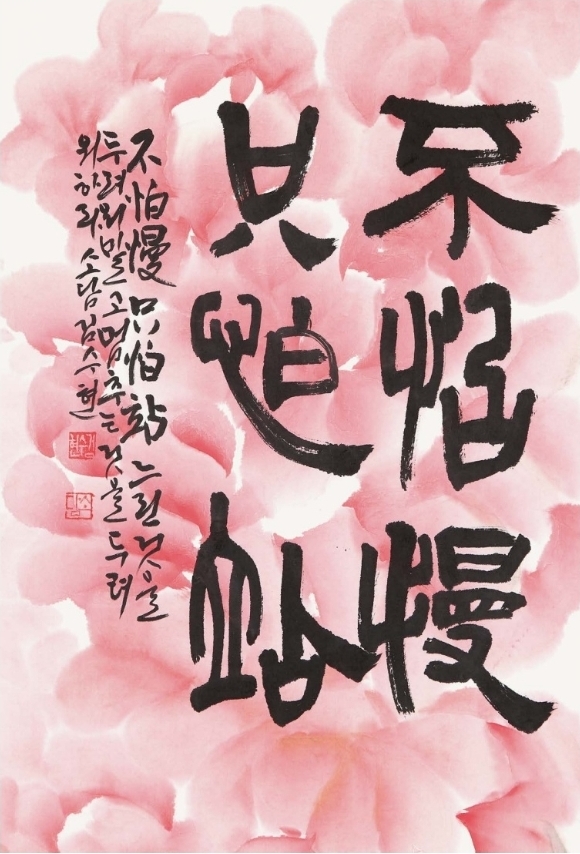 不怕慢
只怕站
不怕慢 只怕站 느린 것을
두려워 말고 멈추는 것을 두려
워하라 소담 김수현